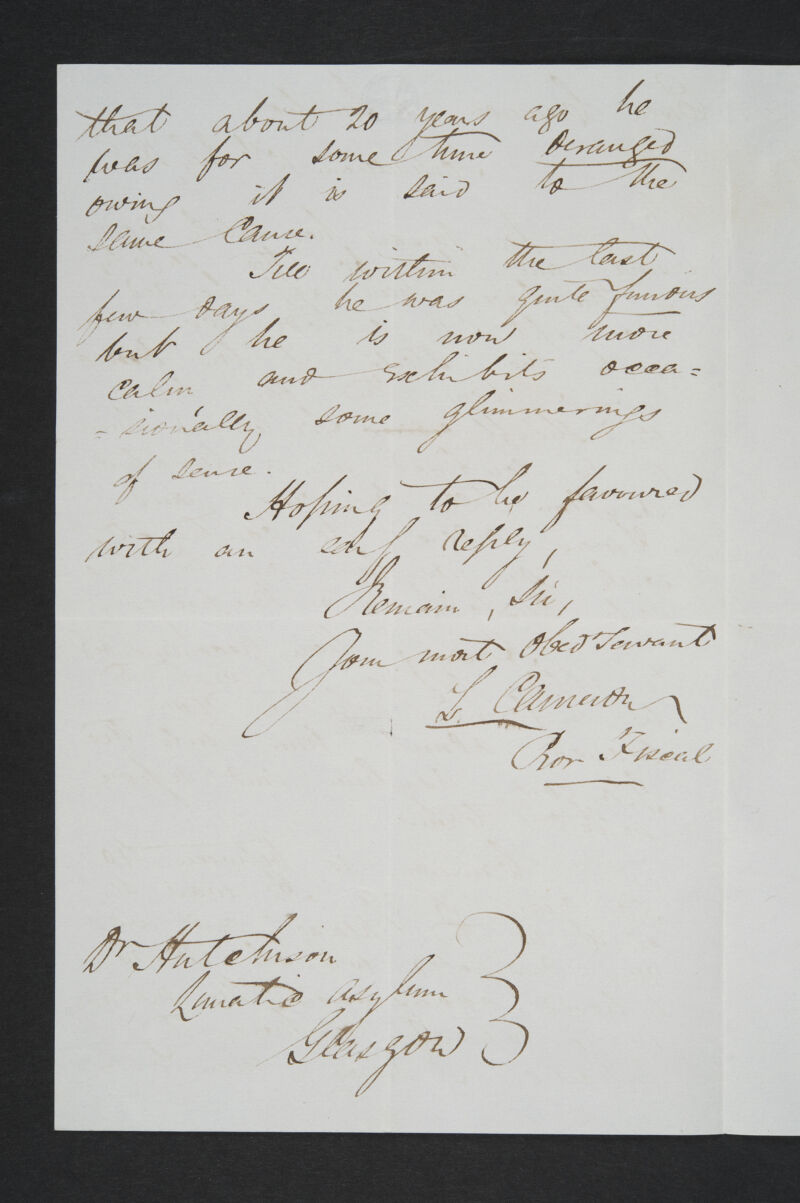 that about 20 years ago he
was for some time deranged
owing it is said to the
same Cause.
Till within the last
few days he was quite furious
but he is now more
calm and exhibits occa=
=sionally some glimmerings
of sense.
Hoping to be favoured
with an early reply,
Remain, Sir,
Your most Obedt Servant
Cameron
Pror Fiscal
Dr Hutchison
Lunatic Asylum
Glasgow